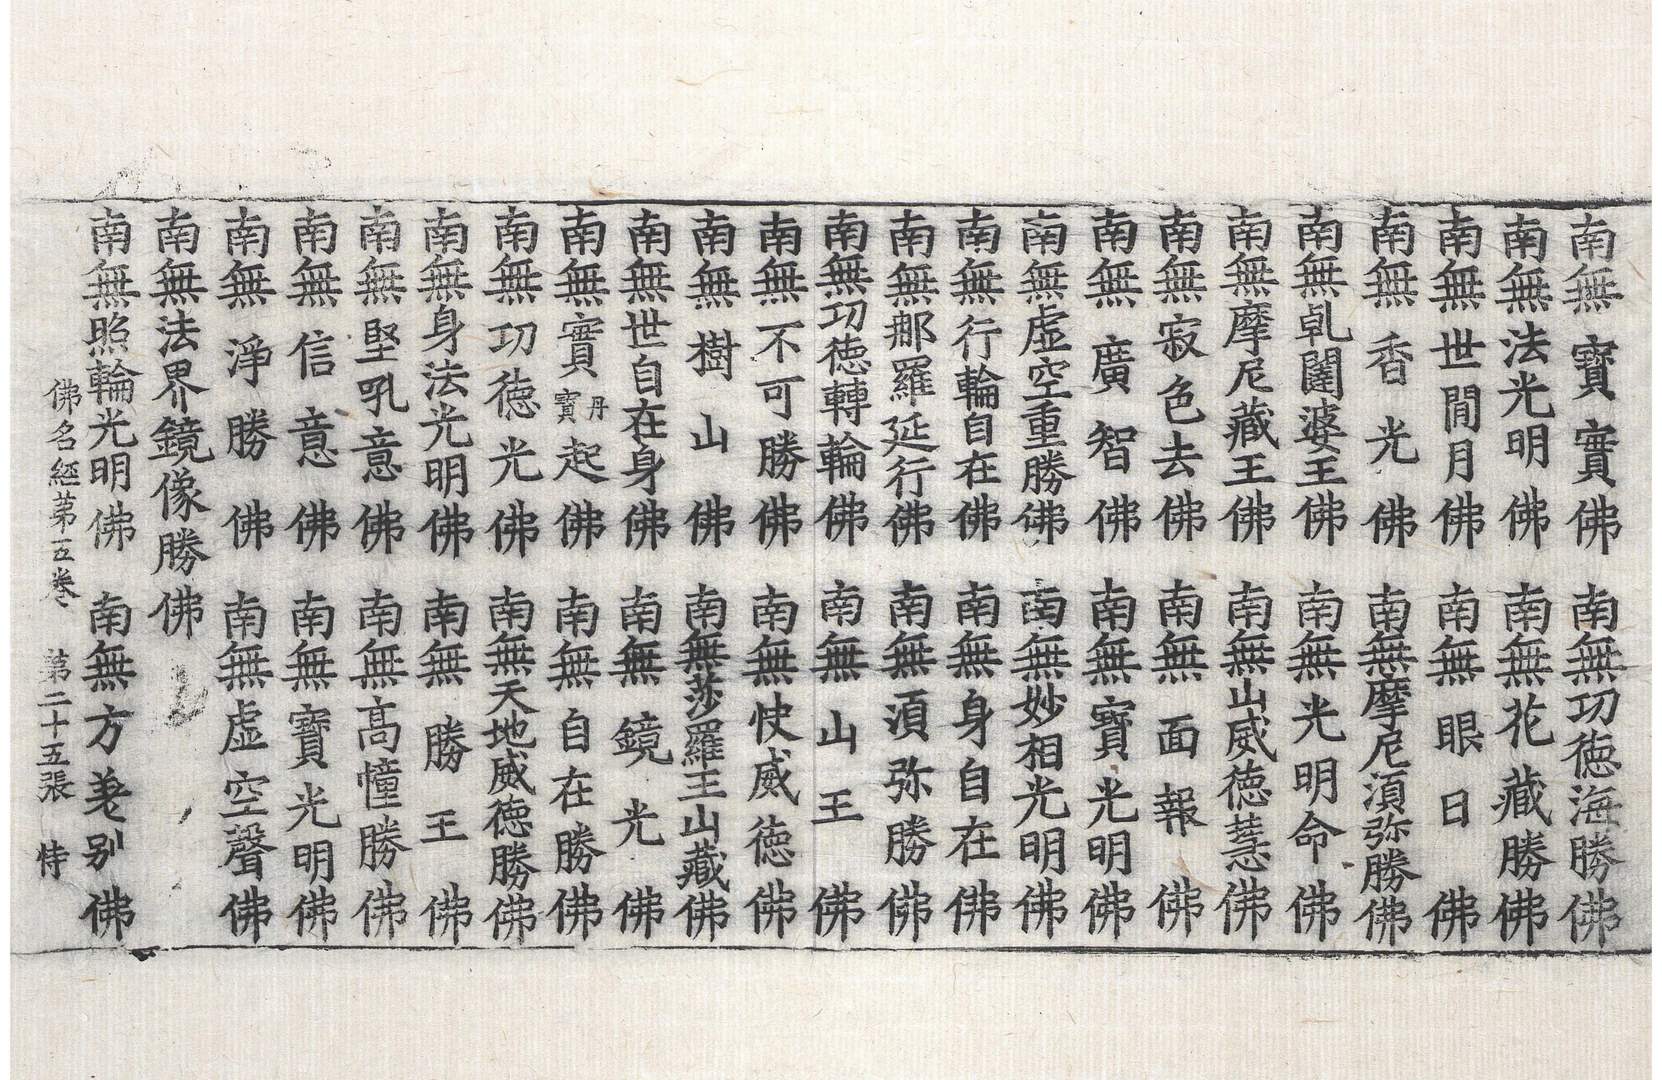 南無寶實佛　南無功徳海勝佛
南無法光明佛　南無花藏勝佛
南無世間月佛　南無眼日佛
南無香光佛　南無摩尼湏弥勝佛
南無乹闥婆王佛　南無光明命佛
南無摩尼藏王佛　南無山威徳慧佛
南無寂色去佛　南無面報佛
南無廣智佛　南無寶光明佛
南無虛空重勝佛　南無妙相光明佛
南無行輪自在佛　南無身自在佛
南無那羅延行佛　南無湏弥勝佛
南無功徳轉輪佛　南無山王佛
南無不可勝佛　南無快威徳佛
南無樹山佛　南無莎羅王山藏佛
南無世自在身佛　南無鏡光佛
南無實丹寶起佛　南無自在勝佛
南無功徳光佛　南無天地威徳勝佛
南無身法光明佛　南無勝王佛
南無堅吼意佛　南無高憧勝佛
南無信意佛　南無寶光明佛
南無淨勝佛　南無虛空聲佛
南無法界鏡像勝佛
南無照輪光明佛　南無方差别佛
佛名經第五卷　第二十五張　恃